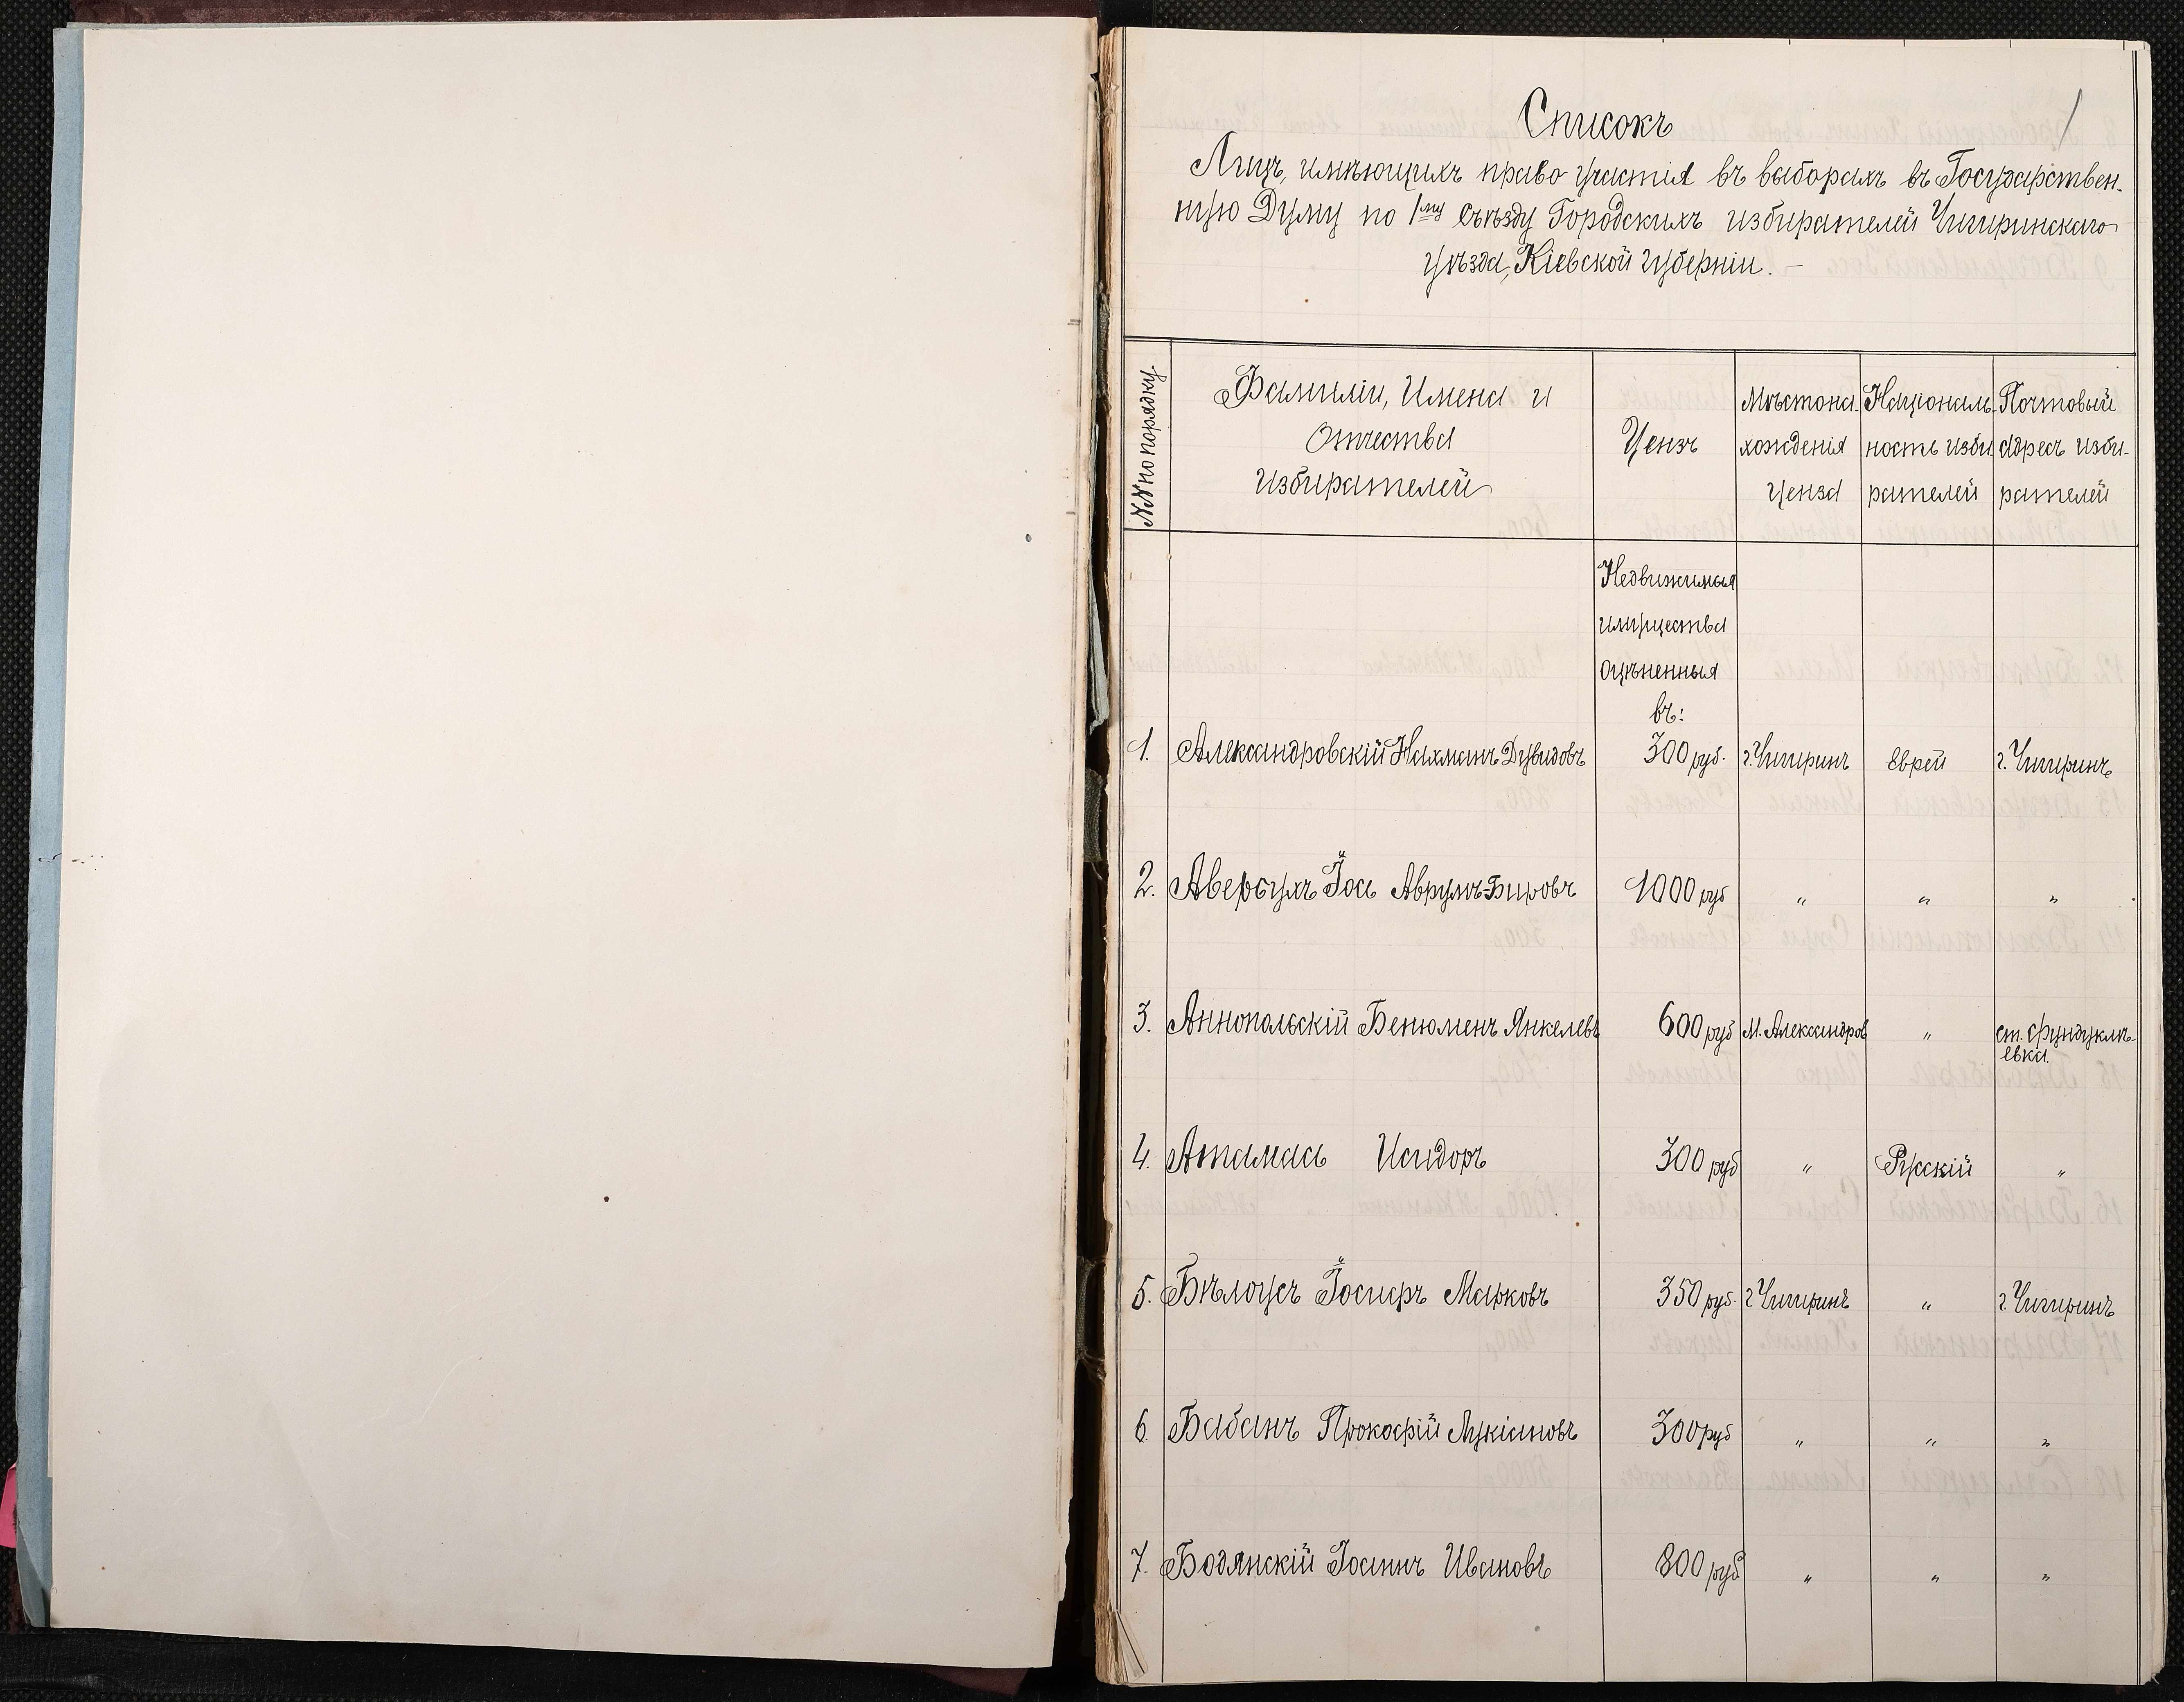 1
Списокъ
Лицъ, имѣющихъ право участія въ выборахъ въ Государствен-
ную Думу по 1му съѣзду Городскихъ избирателей Чигиринскаго
уѣзда, Кіевской губерніи. –
№№ по порядку
Фамиліи, Имена и
Отчества
избирателей
Цензъ
Мѣстона-
хожденія
ценза
Націоналъ-
ность изби-
рателей
Почтовый
адресъ изби-
рателей
Недвижимыя
имущества
оцѣненныя
въ:
1. Александровскій Нахманъ Дувидовъ 300 руб. г. Чигиринъ еврей г. Чигиринъ
2. Авербухъ Іось Аврумъ-Бировъ 1000 руб " " "
3. Аннопольскій Бенюменъ Янкелевъ 600 руб М. Александров " ст. Фундуклѣ-
евка.
4. Атамась Исидоръ 300 руб " Русскій "
5. Бѣлоусъ Іосифъ Марковъ 350 руб. г Чигиринъ " г. Чигиринъ
6 Бабанъ Прокофій Лукіановъ 300 руб " " "
7. Бодянскій Іоаннъ Ивановъ 800 руб " " "